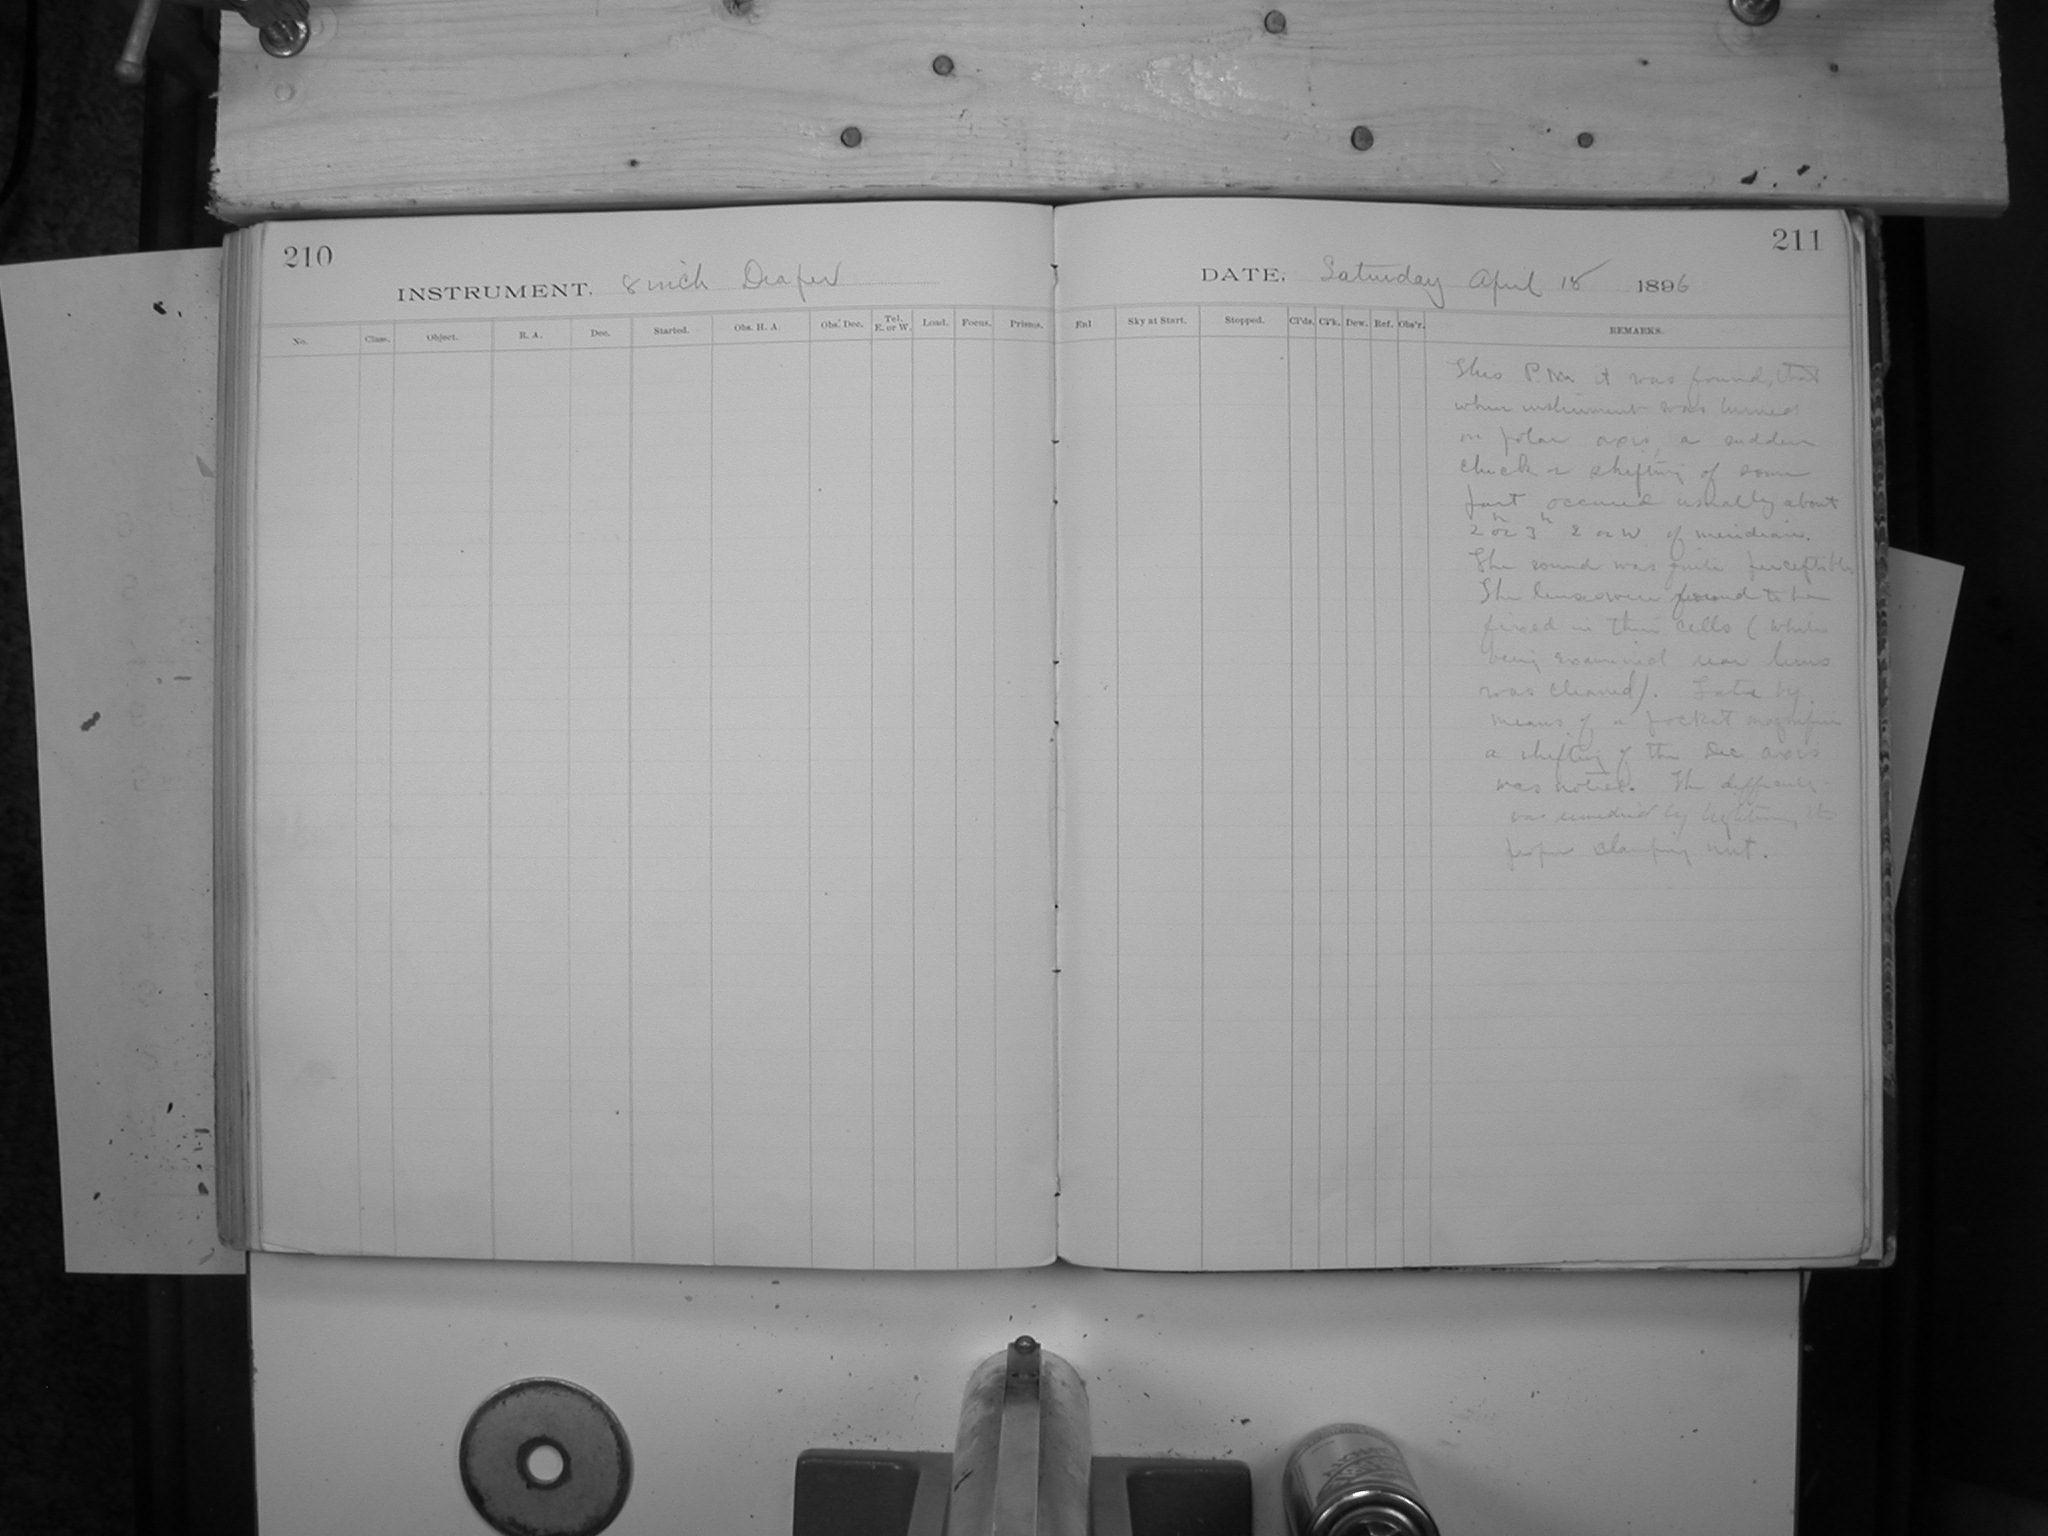 210
INSTRUMENT. 8 inch Draper
No. Class. Object. R. A. Dec. Started. Obs. H. A. Obs. Dec. Tel. E. or W. Load. Focus. Prisms.
211
DATE. Saturday April 18 1896
Enl Sky at Start. Stopped. Cl'ds. Cl'k. Dew. Ref. Obs'r. REMARKS.
This P.M. it was found, that
when instrument was turned
on polar axis, a sudden
or shifting of some
part occured usually about
2h or 3h E or W of meridian.
The sound was quite perceptible.
The lenses were found to be
fixed in their cells (while
being examined rear lens
was cleaned). Later by
means of a pocket magnifier
a shifting of the Dec axis
was noticed. The difficulty
was remedied by tightening its
proper clamping nut.